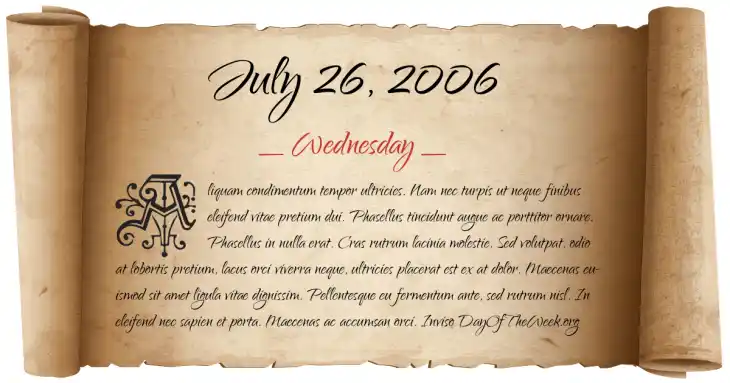 July 26, 2006
_ Wednesday _
Aliquam condimentum tempor ultricies. Nam nec turpis ut neque finibus
eleifend vitae pretium dui. Phasellus tincidunt augue ac porttitor ornare.
Phasellus in nulla erat. Cras rutrum lacinia molestie. Sed volutpat, odio
at lobortis pretium, lacus orci viverra neque, ultricies placerat est ex at dolor. Maecenas eu-
ismod sit amet ligula vitae dignissim. Pellentesque eu fermentum ante, sed rutrum nisl. In
eleifend nec sapien et porta. Maecenas ac accumsan orci. Inviso DayOfTheWeek.org